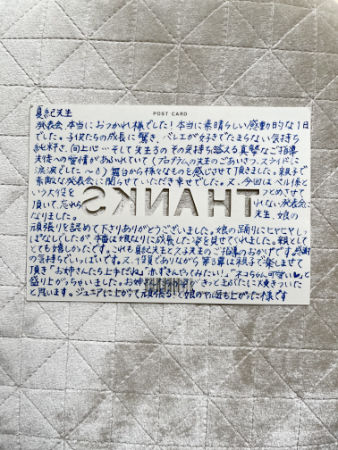 真紀先生
POST CARD
発表会、本当におつかれ様でした!本当に素晴らしい感動的な1日
でした。子供たちの成長に驚き、バレエが好きでたまらない気持ち
純粋さ、向上心…そして先生方のその気持ち溢える真摯なご指導
生徒への愛情があふれていて(プログラムの先生のごあいさつ、スライドに
涙涙でした〜)舞台から様々なものを感じさせて頂きました。親子で
素敵な発表会に関らせていただき幸せでした。又、今回は
という大役を つとめさせて
頂いて、忘れら れない発表会に
THANKS
なりました。 先生、娘の
頑張りを認めて下さりありがとうございました。娘の踊りにヒヤヒヤしっ
ぱなしでしたが、本番は堂々な姿を見せてくれました。親として
とても嬉しかったです。これも真紀先生と 先生のご指導のおかげです。感謝
の気持ちでいっぱいです。又、役員ありながら 第3幕は親子で楽しませて
頂き「お姉さんたち上手だね。」「赤ずきんやってみたい!」「ネコちゃん可愛い♥」と
盛り上がっちゃいました。お姉さん きっと
と思います。ジュニアに上がって頑張ると娘のやる気も上がった様です